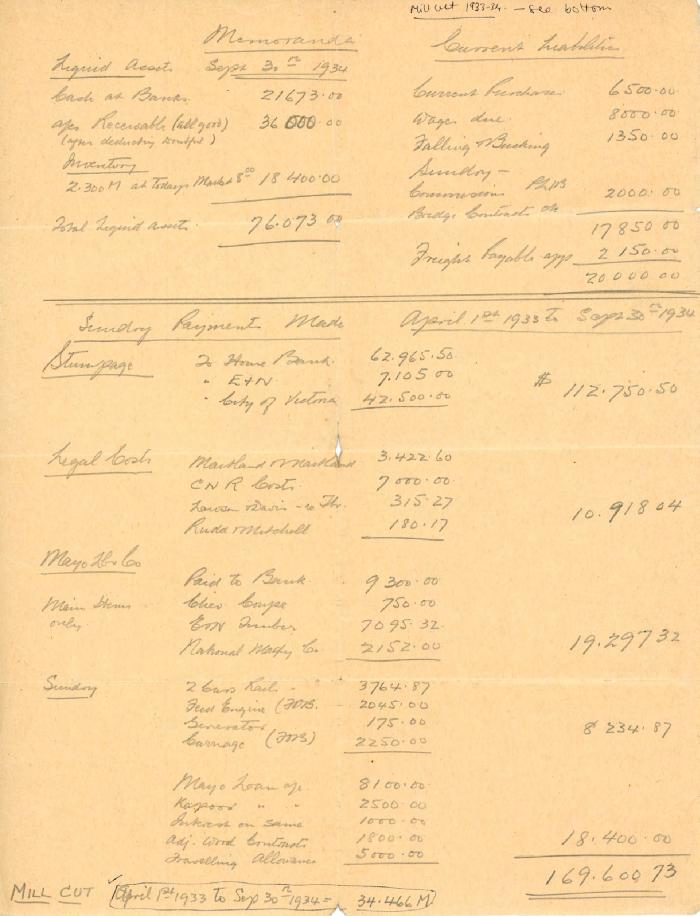 Mill Cut 1933-34. — see bottom
Memoranda
Liquid Assets Sept 30th 1934
Cash at Banks 21673.00
a/cs Receivable (all good) 36 000.00
(after deducting doubtful)
Inventory
2.300 M at todays Market 8.00 18 400.00
Total Liquid assets 76.073 00
Current Liabilities
Current Purchases 6500.00
Wages due 8000.00
Falling & Bucking 1350.00
Sundry —
Commissions 2000.00
Bridge Contracts etc
17850 00
Freight Payable 2 150.00
20000 00
Sundry Payments Made April 1st 1933 to Sept 30th 1934
Stumpage To Home Bank 62.965.50
" E&N 7.105 00
" City of Victoria 42.500.00 $ 112.750.50
Legal Costs Maitland & Maitland 3.422.60
C N R Costs 7000.00
Lawson & Davis 315.27
Rudd & Mitchell 180.17 10.918 04
Mayo Lbr Co Paid to Bank 9300.00
Main Items only. Chev Coupe 750.00
E&N Timber 7095.32
National Machy Co. 2152.00 19.297 32
Sundry 2 Cars Rail 3764.87
Feed Engine (FOB. 2045.00
Generator 175.00
Carriage (FOB) 2250.00 8 234.87
Mayo Loan a/c 8100.00
Kapoor " " 2500.00
Interest on same 1000.00
Adj. Wood Contracts 1800.00
Travelling Allowance 5000.00 18.400.00
169.600 73
MILL CUT April 1st 1933 to Sep 30th 1934 = 34.466 M